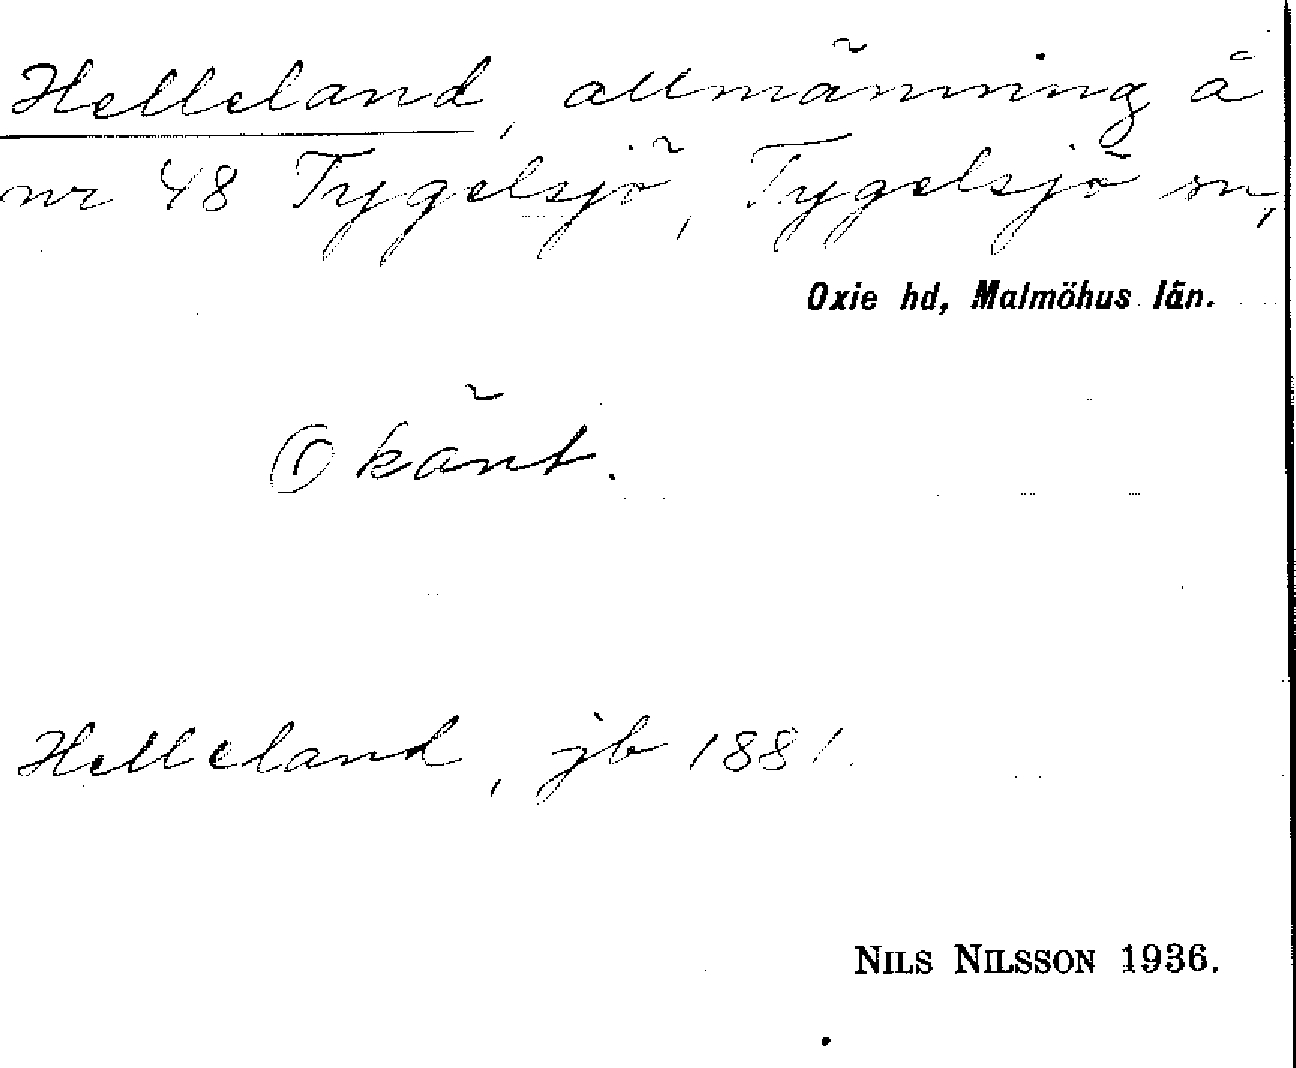 Helleland, allmänning å
nr 48 Tygelsjö, Tygelsjö sn,
Oxie hd, Malmöhus län.
Okänt.
Helleland, jb 1881.
NILS NILSSON 1936.